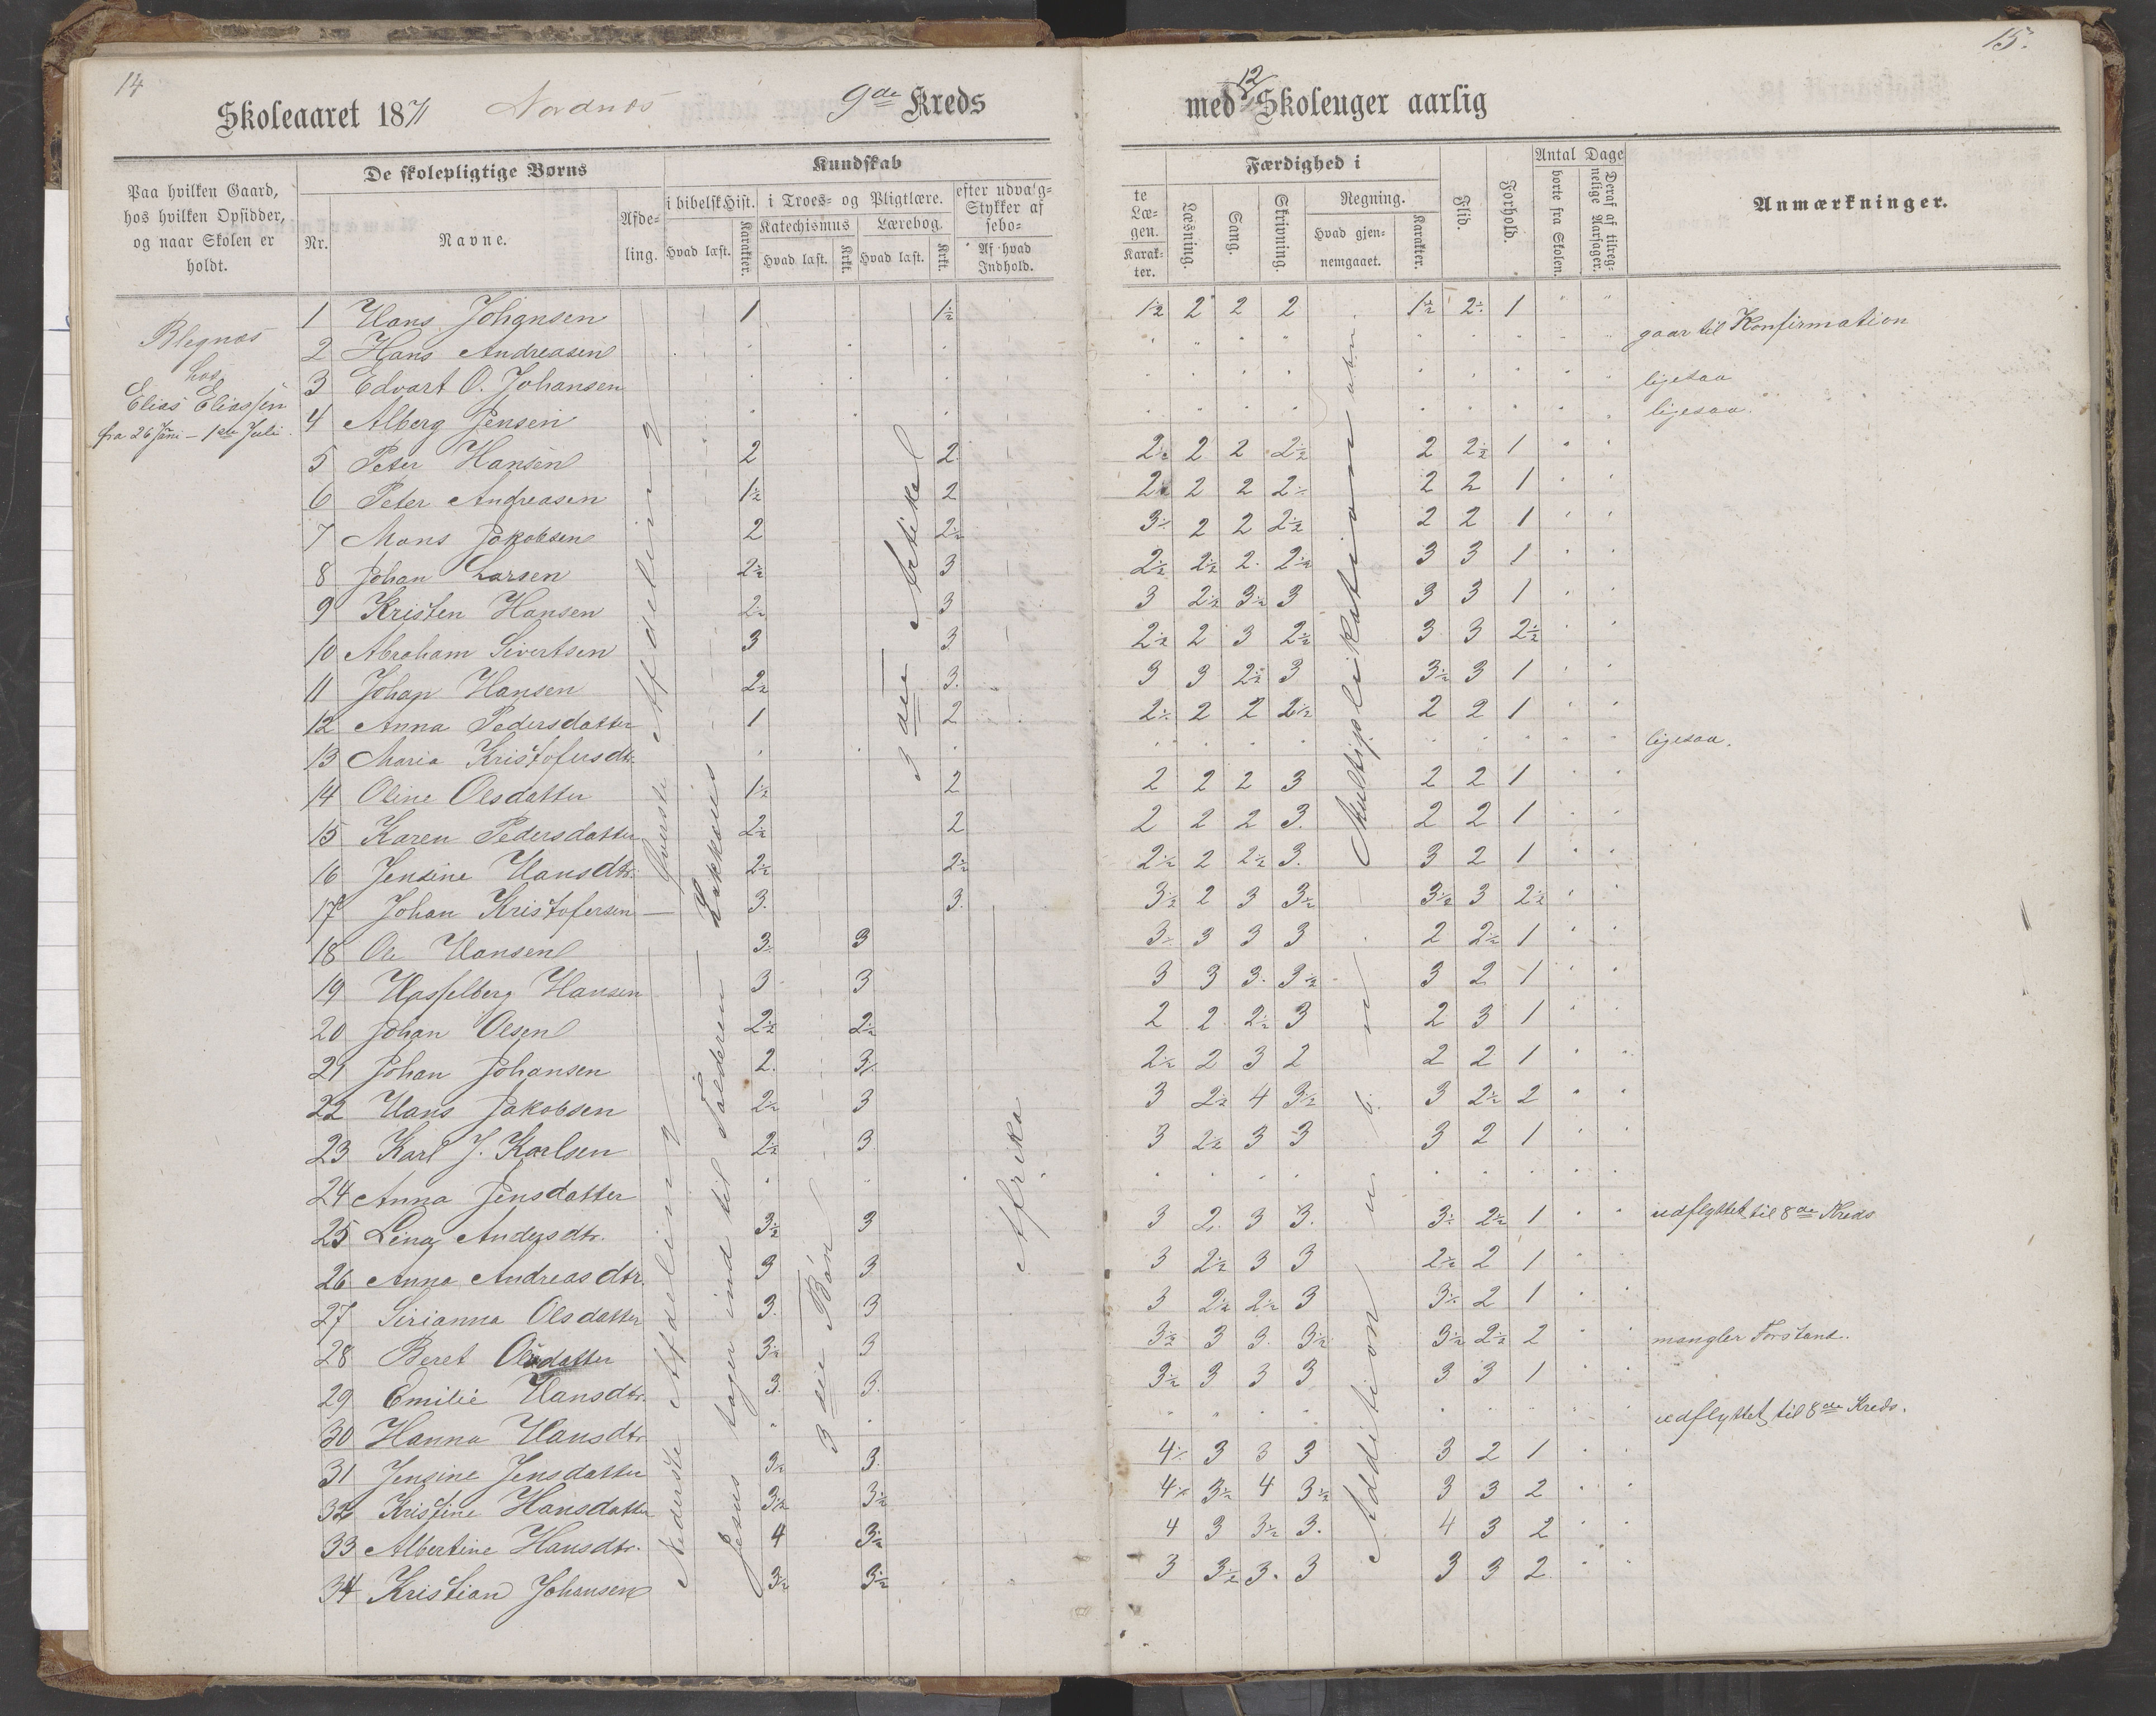 14
Skoleaaret 1871 Nordnæs 9de Kreds
Paa hvilken Gaard,
hos hvilken Opsidder,
og naar Skolen er
holdt.
De skolepligtige Børns
Nr.
Navne.
Afde-
ling.
Kundskab
i bibelsk Hist.
Hvad læst.
Karakter.
i Troes- og Pligtlære.
Katechismus
Hvad læst.
Krkt.
Lærebog.
Hvad læst.
Krkt.
efter udvalg-
Stykker af
sebo-
Af hvad
Indhold.
Blegnæs
hos
Elias Eliassen
fra 26 Juni - 1ste Juli.
1 Hans Johansen 1 1½
2 Hans Andreasen
3 Edvart O. Johansen
4 Alberg Jensen
5 Peter Hansen 2 2
6 Peter Andreasen 1½ 2
7 Mons Jakobsen 2 2½
8 Johan Larsen 2½ 3
9 Kristen Hansen 2½ 3
10 Abraham Sivertsen 3 3
11 Johan Hansen 2½ 3.
12 Anna Pedersdatter 1 2
13 Maria Kristofersdtr.
14 Oline Olsdatter 1½ 2
15 Karen Pedersdatter 2½ 2
16 Jensine Hansdtr. 2½ 2½
17 Johan Kristofersen 3. 3.
18 Ole Hansen 3½ 3
19 Hasselberg Hansen 3 3
20 Johan Olsen 2½ 2½
21 Johan Johansen 2. 3½
22 Hans Jakobsen 2½ 3
23 Karl J. Karlsen 2½ 3
24 Anna Jensdatter
25 Lina Andersdtr. 3½ 3
26 Anna Andreasdtr. 3 3
27 Sirianna Olsdatter 3. 3
28 Beret Olsdatter 3½ 3
29 Emilie Hansdtr. 3. 3.
30 Hanna Hansdtr.
31 Jensine Jensdatter 3½ 3.
32 Kristine Hansdatter 3½ 3½
33 Albertine Hansdtr. 4 3½
34 Kristian Johansen 3½ 3½
Øverste Afdeling
Nederste Afdeling
Jesus tager ind til Tolderen Zakkæus
3die Bøn
3die Artikel
Afrika
15.
med 12 Skoleuger aarlig
te
Læ-
gen.
Karak-
ter.
Færdighed i
Læsning.
Sang.
Skrivning.
Regning.
Hvad gjen-
nemgaaet.
Karakter.
Flid.
Forhold.
Antal Dage
borte fra Skolen.
Deraf af tilreg-
nelige Aarsager.
Anmærkninger.
1½ 2 2 2 1½ 2½ 1
gaar til Konfirmation
ligesaa
ligesaa.
2½ 2 2 2½ 2 2½ 1
2½ 2 2 2½ 2 2 1
3½ 2 2 2½ 2 2 1
2½ 2½ 2. 2½ 3 3 1
3 2½ 3½ 3 3 3 1
2½ 2 3 2½ 3 3 2½
3 3 2½ 3 3½ 3 1
2½ 2 2 2½ 2 2 1
ligesaa.
2 2 2 3 2 2 1
2 2 2 3. 2 2 1
2½ 2 2½ 3. 3 2 1
3½ 2 3 3½ 3½ 3 2½
3½ 3 3 3 2 2½ 1
3 3 3. 3½ 3 2 1
2 2 2½ 3 2 3 1
2½ 2 3 2 2 2 1
3 2½ 4 3½ 3 2½ 2
3 2½ 3 3 3 2 1
3 2. 3 3. 3½ 2½ 1 udflyttet til 8de Kreds
3 2½ 3 3 2½ 2 1
3 2½ 2½ 3 3½ 2 1
3½ 3 3. 3½ 3½ 2½ 2 mangler Forstand.
3½ 3 3 3 3 3 1
udflyttet til 8de Kreds.
4½ 3 3 3 3 2 1
4½ 3½ 4 3½ 3 3 2
4 3 3½ 3. 4 3 2
3 3½ 3. 3 3 3 2.
Multiplikation
Addition